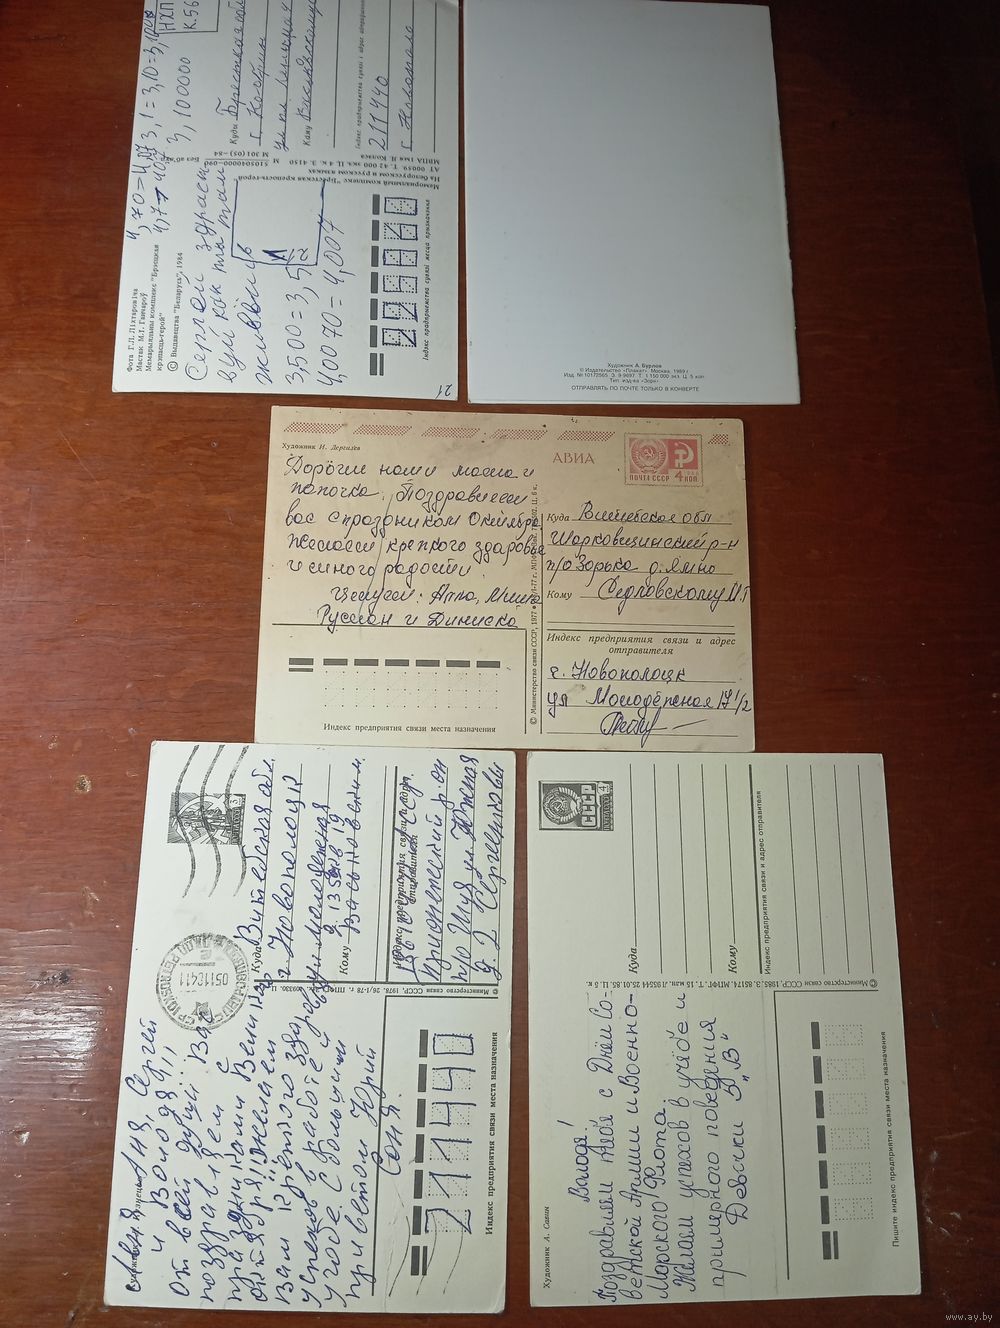 4,70 > 4,07 3,1 = 3,10 = 3,100
4,7 > 407 3,100000
НХП
К56
Фота Г.Л. Ліхтаровіча
Мастак М.І. Ганчароў
Мемарыяльны комплекс "Брэсцкая
крэпасць-герой"
© Выдавецтва "Беларусь", 1984
Сергей здраст
вуй как ты там
живёшь
3,500 = 3,5
4,0070 = 4,007
21
Мемориальный комплекс "Брестская крепость-герой"
На белорусском и русском языках
АТ 00059. Т. 42 000 экз. Ц. 4 к. З. 4150
МППА імя Я. Коласа
М 301 (05)—84
Куды Брестская обл
г Кобрин
Каму
Індэкс прадпрыемства сувязі і адрас адпраўшчыка
211440
Індэкс прадпрыемства сувязі месца прызначэння
Художник А. Бурлов
© Издательство «Плакат». Москва. 1989 г.
Изд. № 10172565 З. 9-9697 Т. 1 150 000 экз. Ц. 5 коп.
Тип. изд-ва «Зоря»
ОТПРАВЛЯТЬ ПО ПОЧТЕ ТОЛЬКО В КОНВЕРТЕ
Художник И. Дергилёв
АВИА
ПОЧТА СССР 4 КОП
Дорогие наши мама и
папочка. Поздравляем
вас с праздником Октября
Желаем крепкого здоровья
и много радости.
Целуем: Алла, Миша
Руслан и Дениска
Куда Витебская обл
Шарковщинский р-н
п/о Зорька д. Ямно
Кому Седловскому И.Г
Индекс предприятия связи и адрес
отправителя
г. Новополоцк
ул Молодёжная 17 1/2
© Министерство связи СССР, 1977
Индекс предприятия связи места назначения
Художник
Аня, Сергей
и Володя!!!
От всей души Вас
поздравляем с
праздником Великого
октября! Желаем
Вам крепкого здоровья
успехов в работе и
учобе. С большим
приветом Юрий
Соня.
Куда Витебская обл.
г. Новополоцк
ул. Молодежная
д. 135 кв 19
Кому Васьновским.
Индекс предприятия связи и адрес
отправителя
п/о Шуя ул. Южная
д. 2 Сергеенковы
© Министерство связи СССР, 1978. 26/1-78 г. ППФ
211440
Индекс предприятия связи места назначения
СССР
4
Художник А. Савин
Володя!
Поздравляем тебя с Днём Со-
ветской Армии и Военно-
Морского Флота.
Желаем успехов в учёбе и
примерного поведения
Девочки 5 „В"
Куда
Кому
Индекс предприятия связи и адрес отправителя
© Министерство связи СССР, 1985. З. 85174. МПФГ. Т. 15 млн. Л95544 25.01.85. Ц. 5 к.
Пишите индекс предприятия связи места назначения
www.ay.by